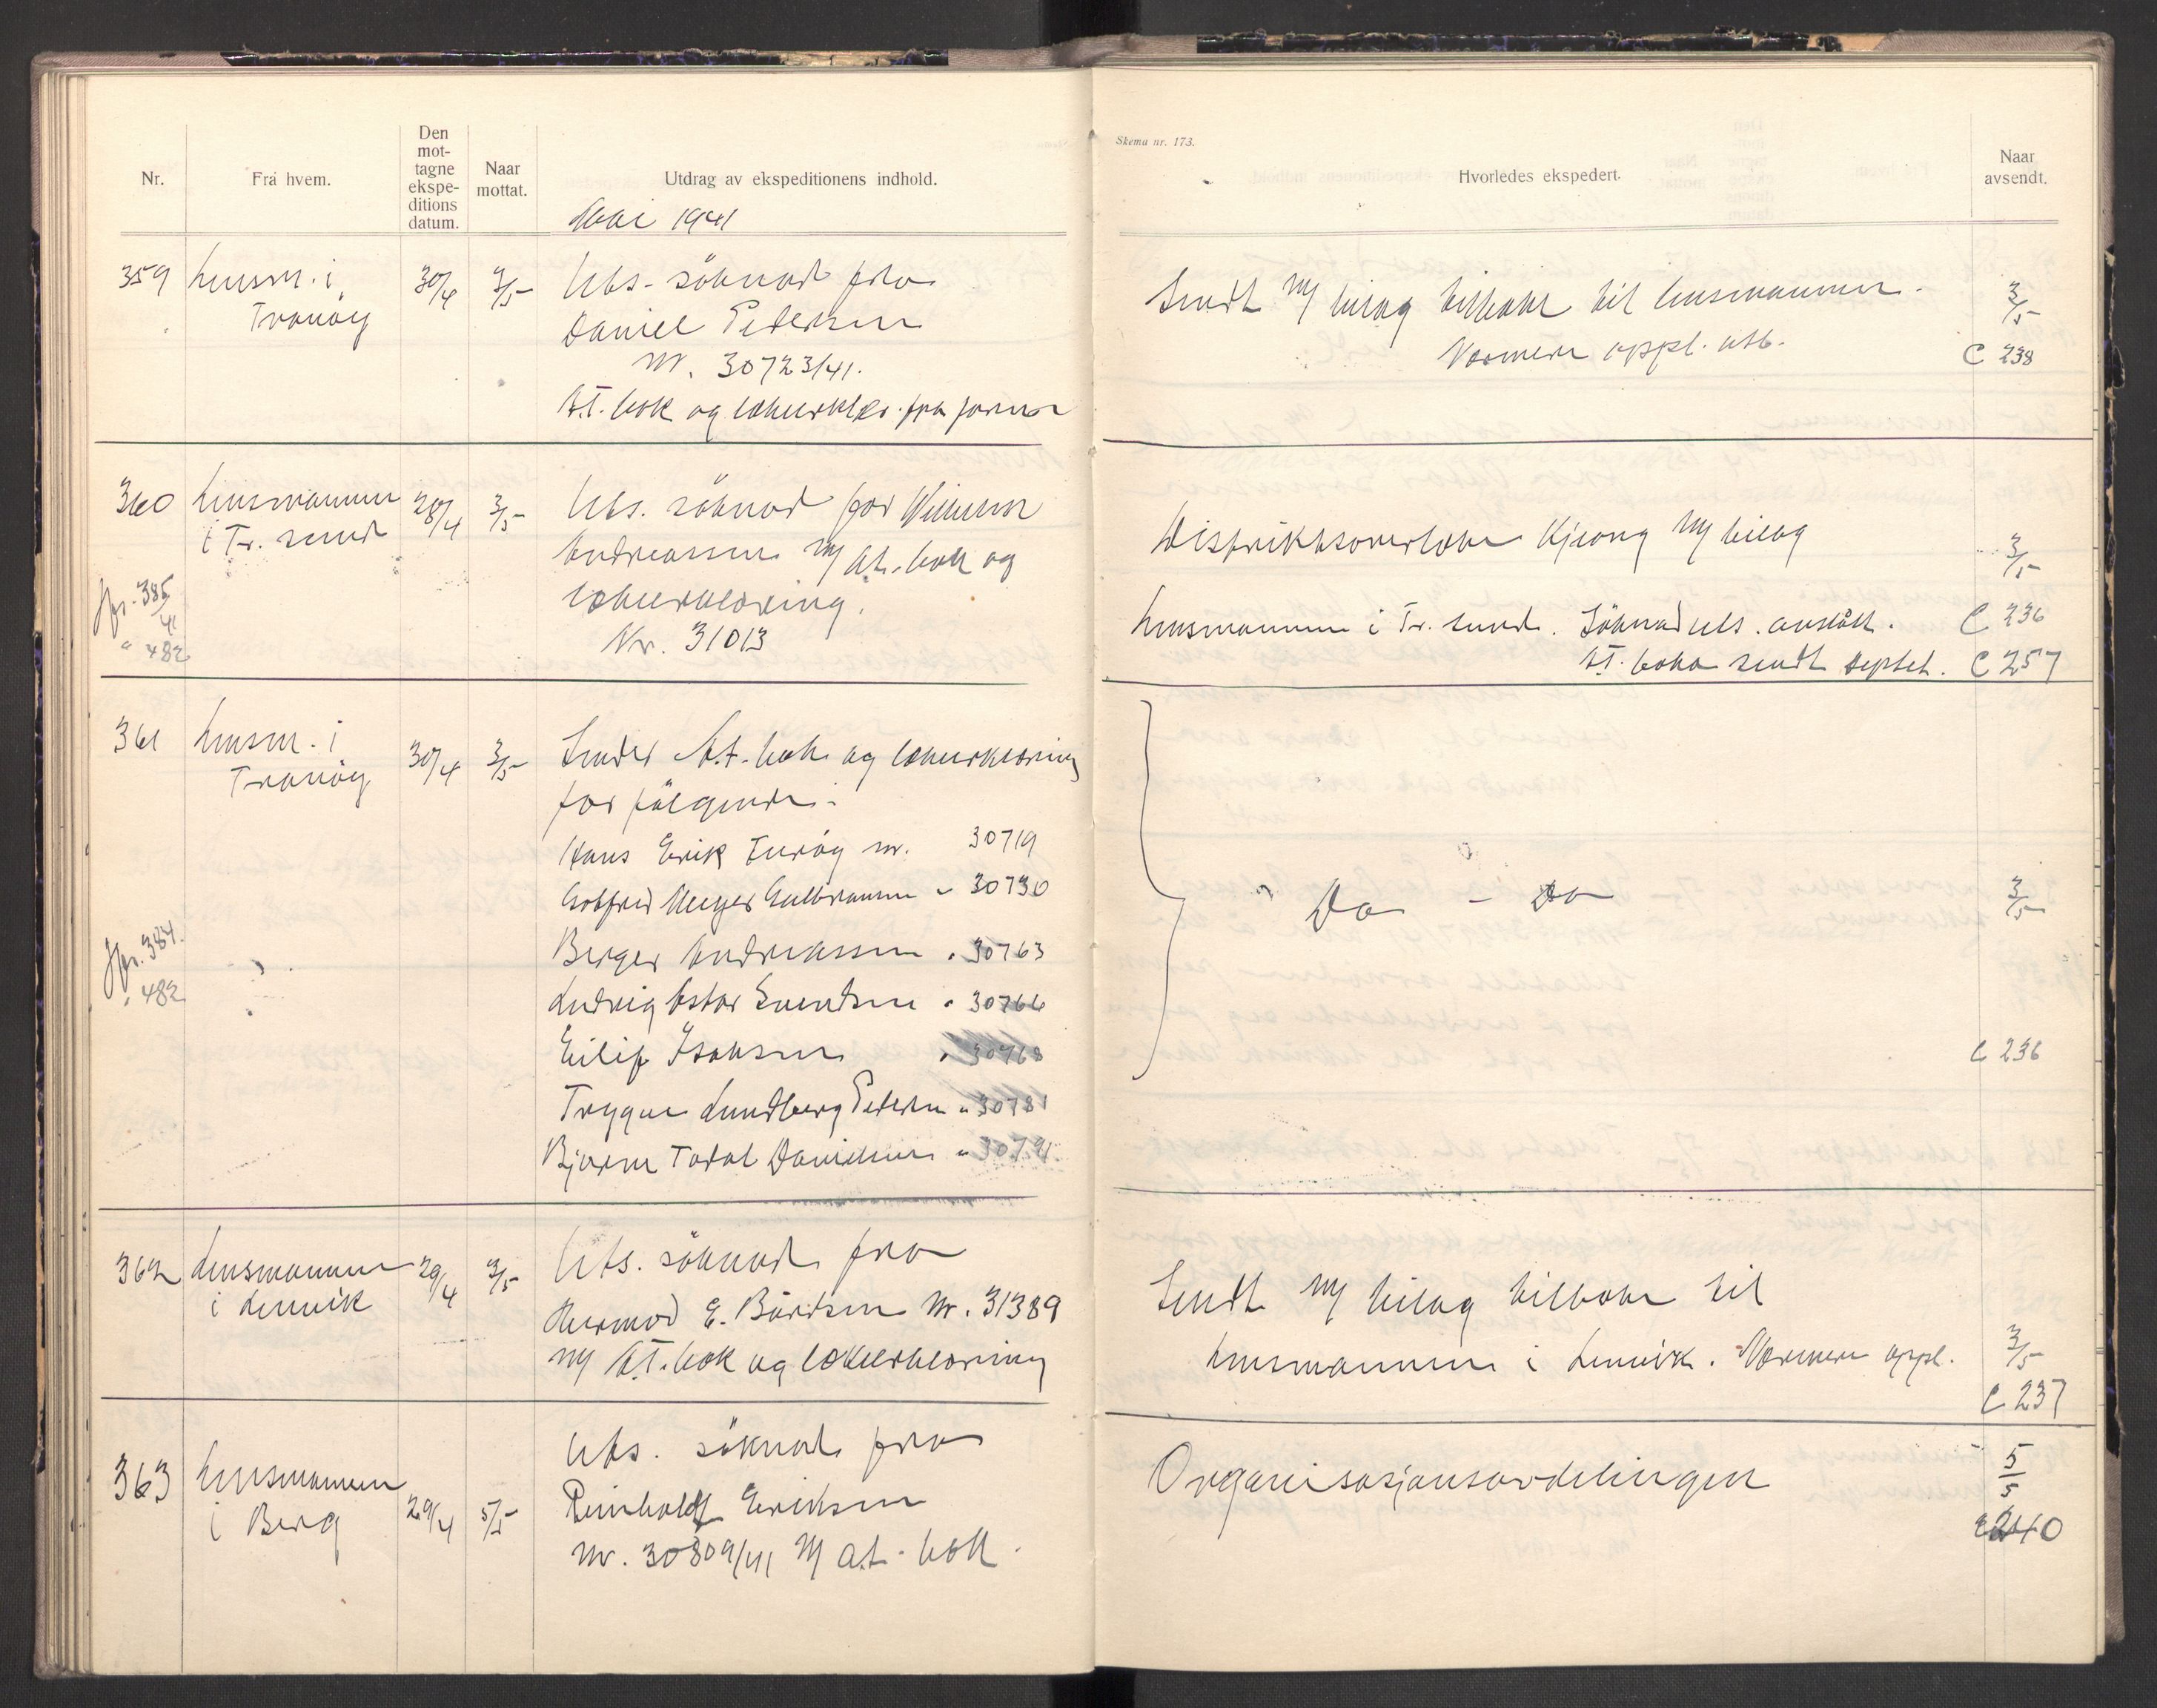 Nr.
Fra hvem.
Den
mot-
tagne
ekspe-
ditions
datum.
Naar
mottat.
Utdrag av ekspeditionens indhold.
Mai 1941
359
Lensm. i
Tranøy
30/4
3/5
Uts. söknad fra
Daniel Pedersen
Nr. 30723/41.
A.T. bok og lækerklær. fra før
360
Lensmannen
i Tr. sund
28/4
3/5
Uts. söknad for
Andreassen m/ A.t. bok og
lækerklæring.
Nr. 31013
Jfr. 385/41
" 482
361
Lensm. i
Tranöy
30/4
3/5
Sender A.t. bok og lækerklæring
for fölgende:
Hans Erik nr. 30719
Gotfred Meyer Gulbransen " 30730
Berger Andreassen " 30763
Ludvig Astor Svendsen " 30766
Eilif Isaksen " 30768
Trygve Lundberg Pedersen " 30781
Bjarne Todal Danielsen " 30791.
Jfr. 384.
" 482
362
Lensmannen
i Lenvik
29/4
3/5
Uts. söknad fra
Hermod E. Bårdsen Nr. 31389
m/ A.T. bok og lækerklæring
363
Lensmannen
i Berg
29/4
5/5
Uts. söknad fra
Reinholdt Eriksen
Nr. 30809/41 m/ a.t. bok.
Skema nr. 173.
Hvorledes ekspedert.
Naar
avsendt.
Sendt m/ bilag tilbake til lensmannen.
3/5
Nærmere oppl. utb.
C 238
Distriktsoverlæke m/ bilag
3/5
Lensmannen i Tr. sund. Söknad uts. avslått.
C 236
A.T. boka sendt septbr.
C 257
Do - Do
3/5
C 236
Sendt m/ bilag tilbake til
lensmannen i Lenvik. Nærmere oppl.
3/5
C 237
Organisasjonsavdelingen
5/5
C 240